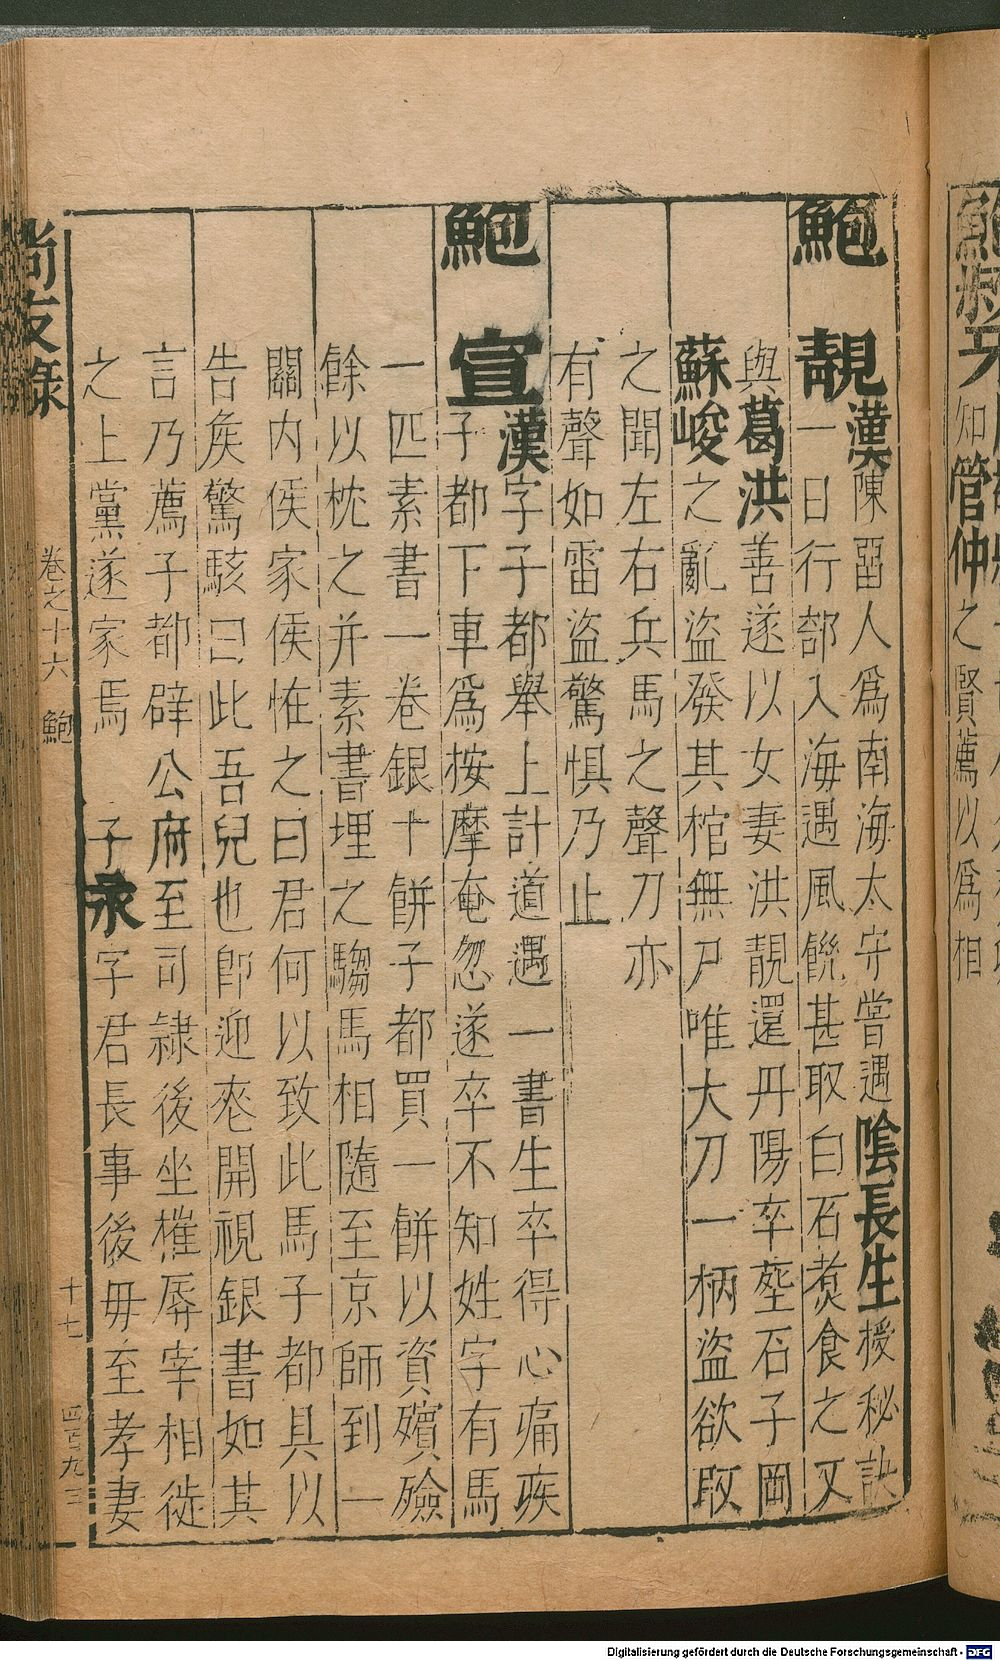 鮑靚漢陳畱人爲南海太守嘗遇隂長生授秘訣
一日行部入海遇風饑甚取白石煑食之又
與葛洪善遂以女妻洪靚還丹陽卒塟石子岡
蘇峻之亂盜發其棺無尸唯大刀一柄盜欲取
之聞左右兵馬之聲刀亦
有聲如雷盜驚惧乃止
鮑宣漢字子都舉上計道遇一書生卒得心痛疾
子都下車爲按摩奄忽遂卒不知姓字有馬
一匹素書一卷銀十餅子都買一餅以資殯殮
餘以枕之并素書埋之騶馬相隨至京師到一
關内侯家侯怪之曰君何以致此馬子都具以
告矦驚駭曰此吾兒也卽迎䘮開視銀書如其
言乃薦子都辟公府至司隷後坐摧辱宰相徙
之上黨遂家焉 子永字君長事後毋至孝妻
尚友錄 卷之十六 鮑 十七 四百九三
知管仲之賢薦以爲相
Digitalisierung gefördert durch die Deutsche Forschungsgemeinschaft - DFG